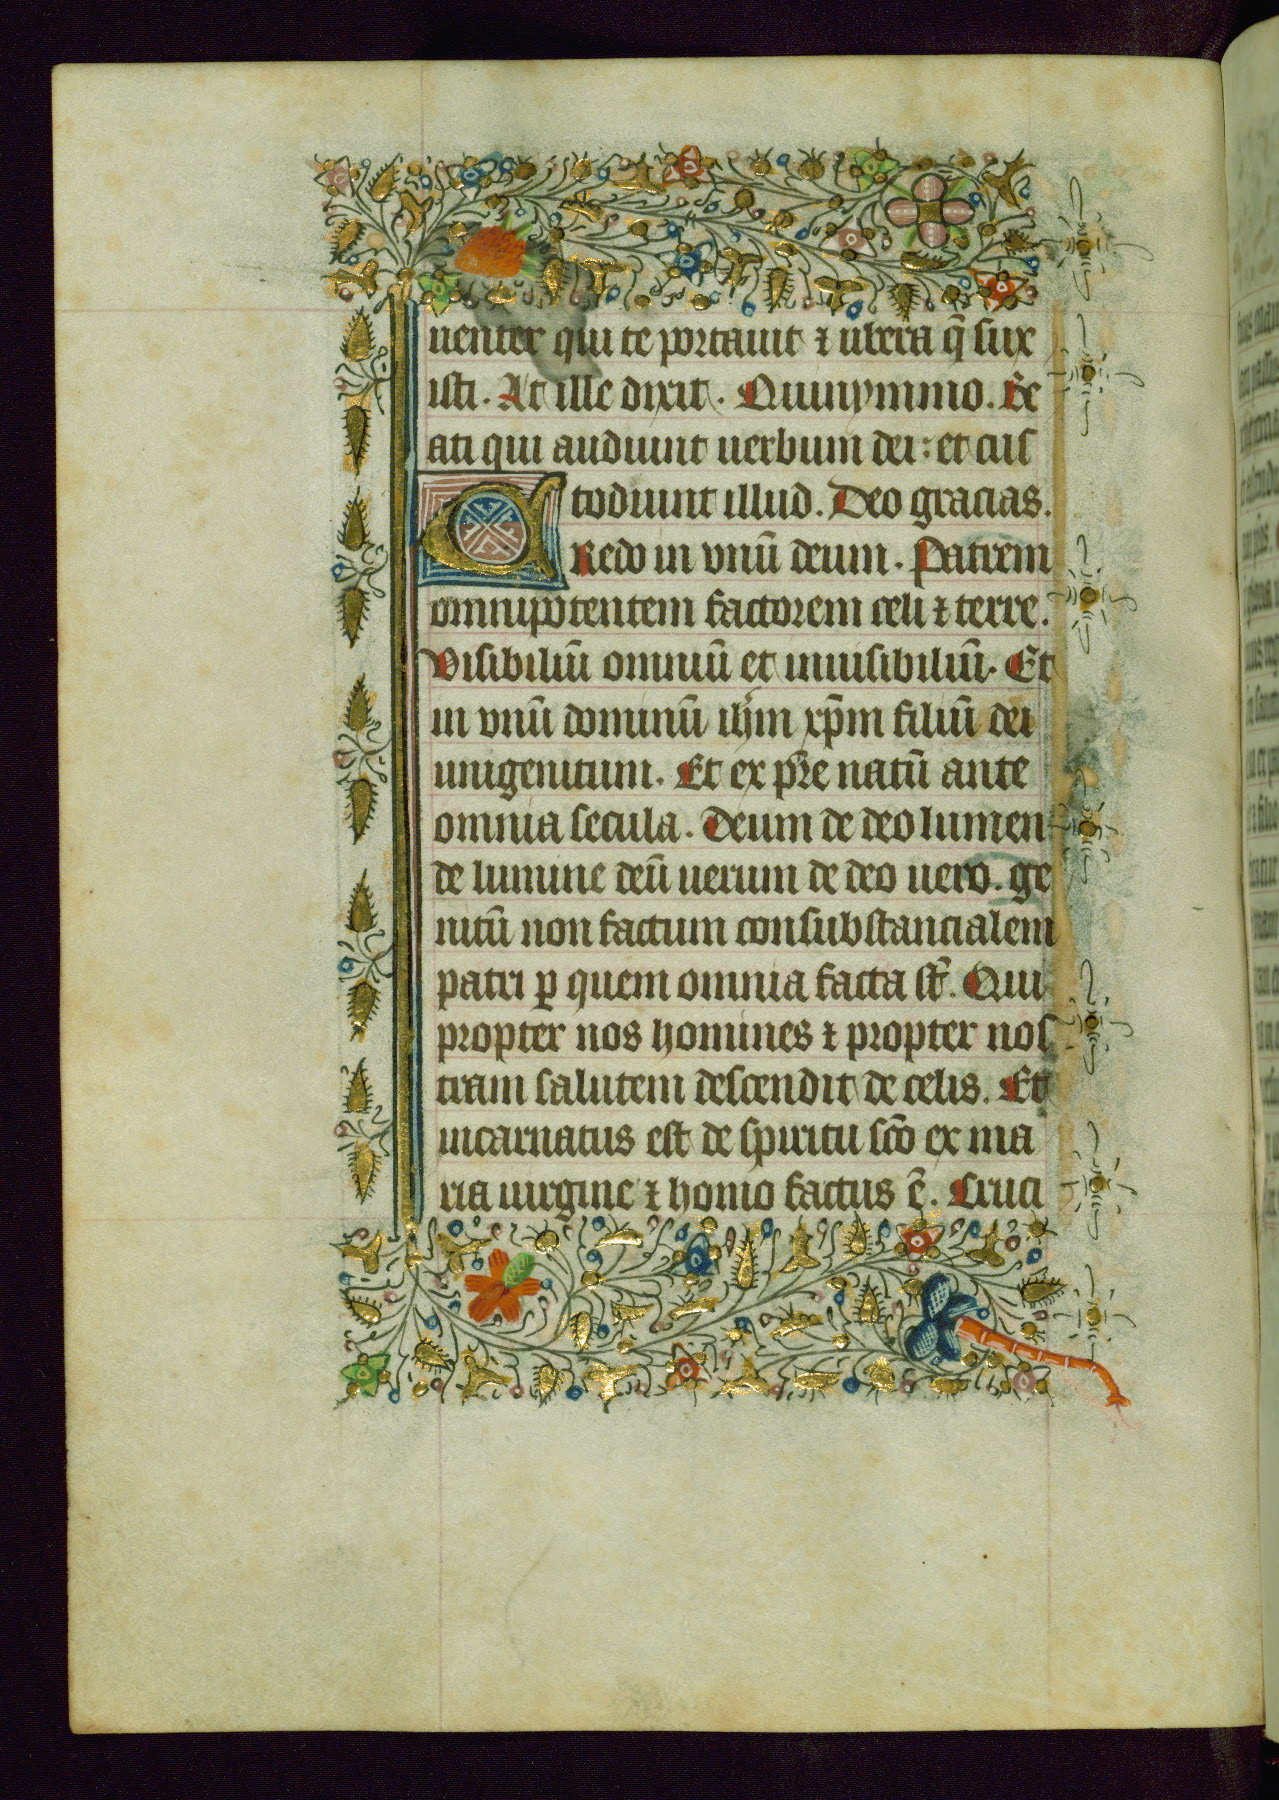 uenter qui te portauit ⁊ ubera q̃ sux
isti. At ille dixit. Quinymmo. Be
ati qui audiunt uerbum dei: et cus
todiunt illud. Deo gracias.
CRedo in vnũ deum. Patrem
omnipotentem factorem celi ⁊ terre.
Visibiliũ omniũ et inuisibiliũ. Et
in vnũ dominũ ih̃m xp̃m filiũ dei
unigenitum. Et ex pr̃e natũ ante
omnia secula. Deum de deo lumen
de lumine deũ uerum de deo uero. ge
nitũ non factum consubstancialem
patri ꝑ quem omnia facta st̃. Qui
propter nos homines ⁊ propter nos
tram salutem descendit de celis. Et
incarnatus est de spiritu sc̃o ex ma
ria uirgine ⁊ homo factus ẽ. Cruci